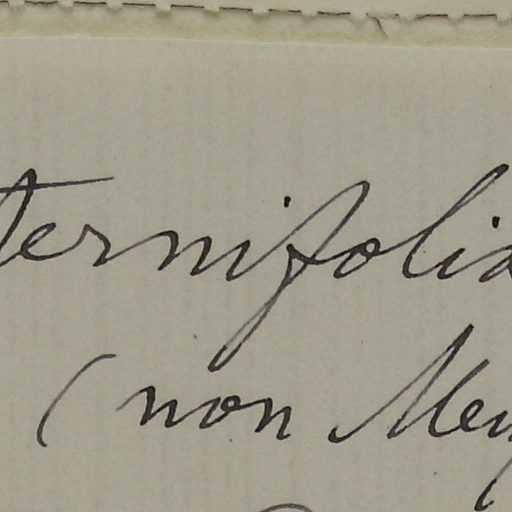 ternifolia
(non Mey